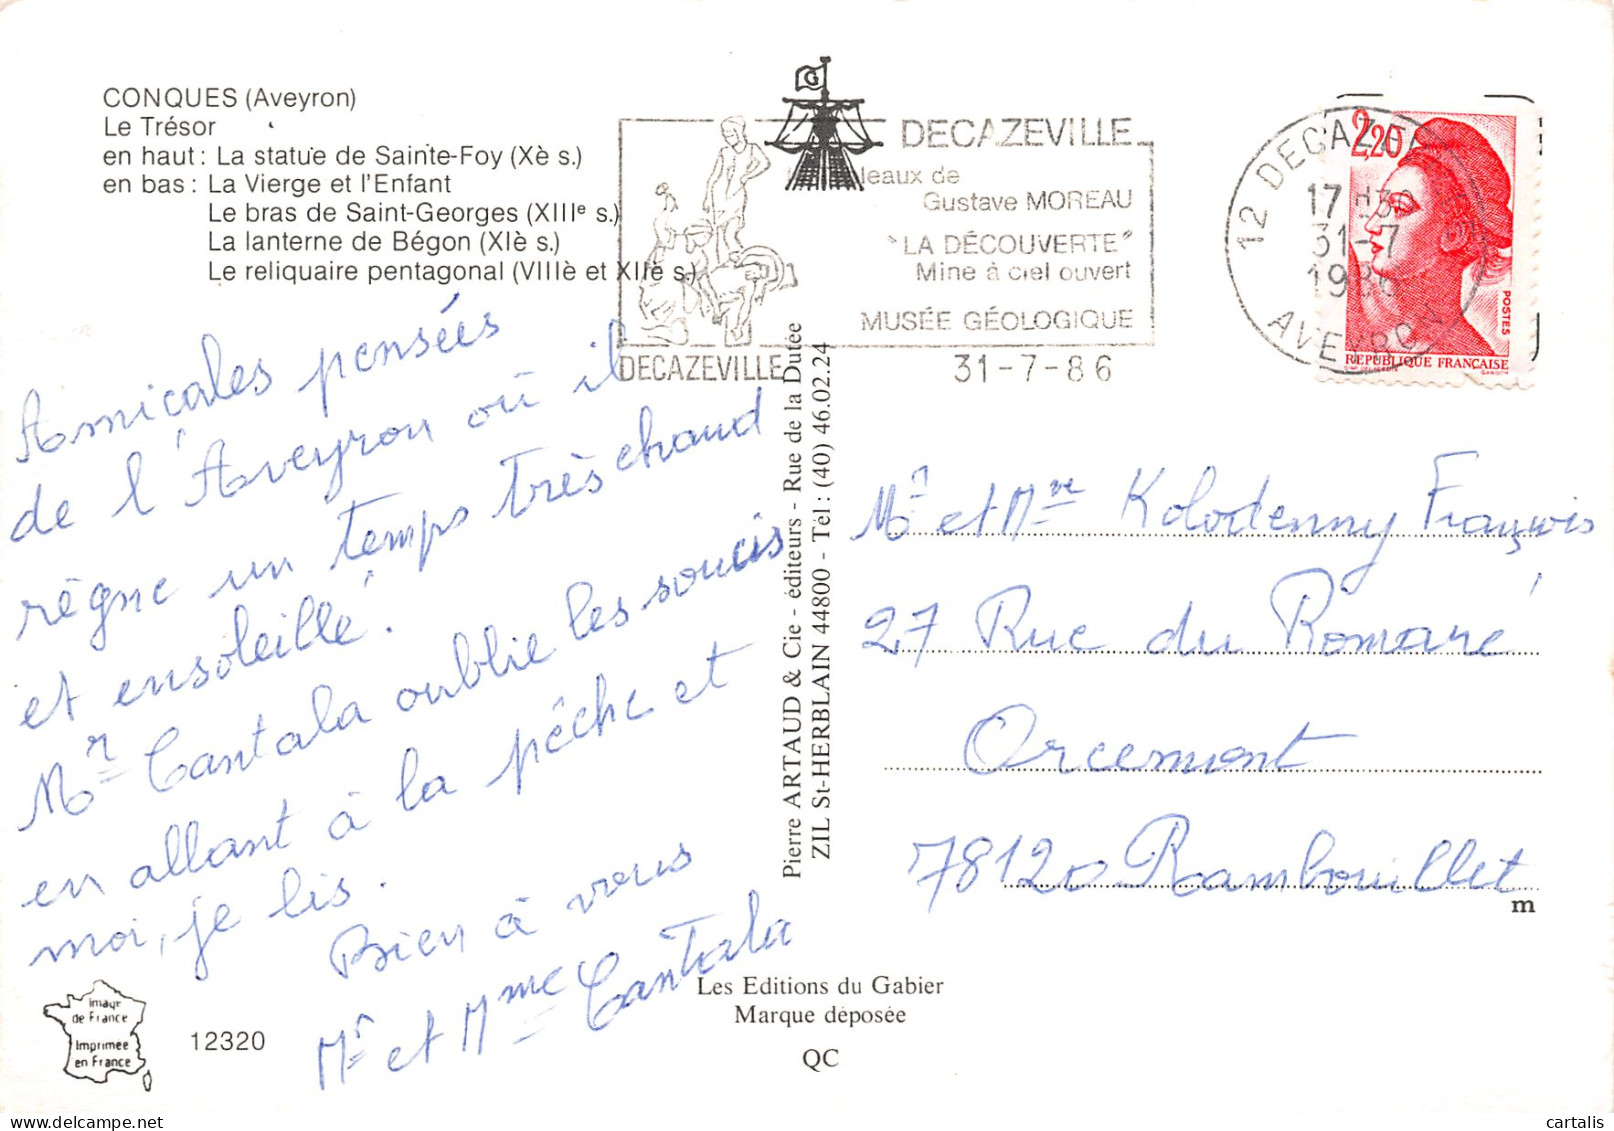 CONQUES (Aveyron)
Le Trésor
en haut : La statue de Sainte-Foy (Xè s.)
en bas : La Vierge et l'Enfant
Le bras de Saint-Georges (XIIIe s.)
La lanterne de Bégon (XIè s.)
Le reliquaire pentagonal (VIIIè et XIIè s.)
G
DECAZEVILLE
leaux de
Gustave MOREAU
"LA DÉCOUVERTE"
Mine à ciel ouvert
MUSÉE GÉOLOGIQUE
DECAZEVILLE
31-7-86
12 DECAZE
17H30
31-7
1986
AVEYRON
2,20
POSTES
REPUBLIQUE FRANÇAISE
GANDON
Amicales pensées
de l'Aveyron où il
règne un temps très chaud
et ensoleillé.
Mr Cantala oublie les soucis
en allant à la pêche et
moi, je lis.
Bien à vous
Mr et Mme Cantala
Pierre ARTAUD & Cie - éditeurs - Rue de la Dutée
ZIL St-HERBLAIN 44800 - Tél : (40) 46.02.24
Mr et Mme Kolodenny François
27 Rue du Romaré
Orcemont
78120 Rambouillet
m
Image
de France
Imprimée
en France
12320
Les Editions du Gabier
Marque déposée
QC
cartalis